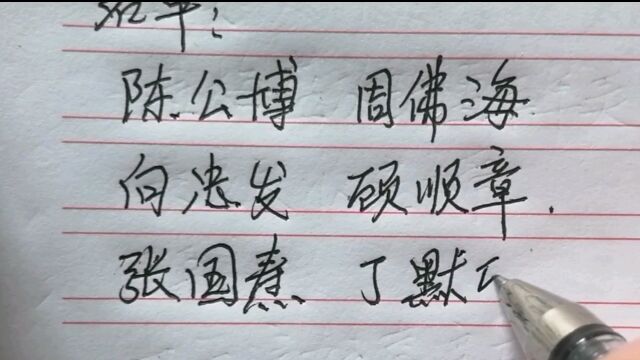 名单：
陈公博 周佛海
向忠发 顾顺章.
张国焘 丁默